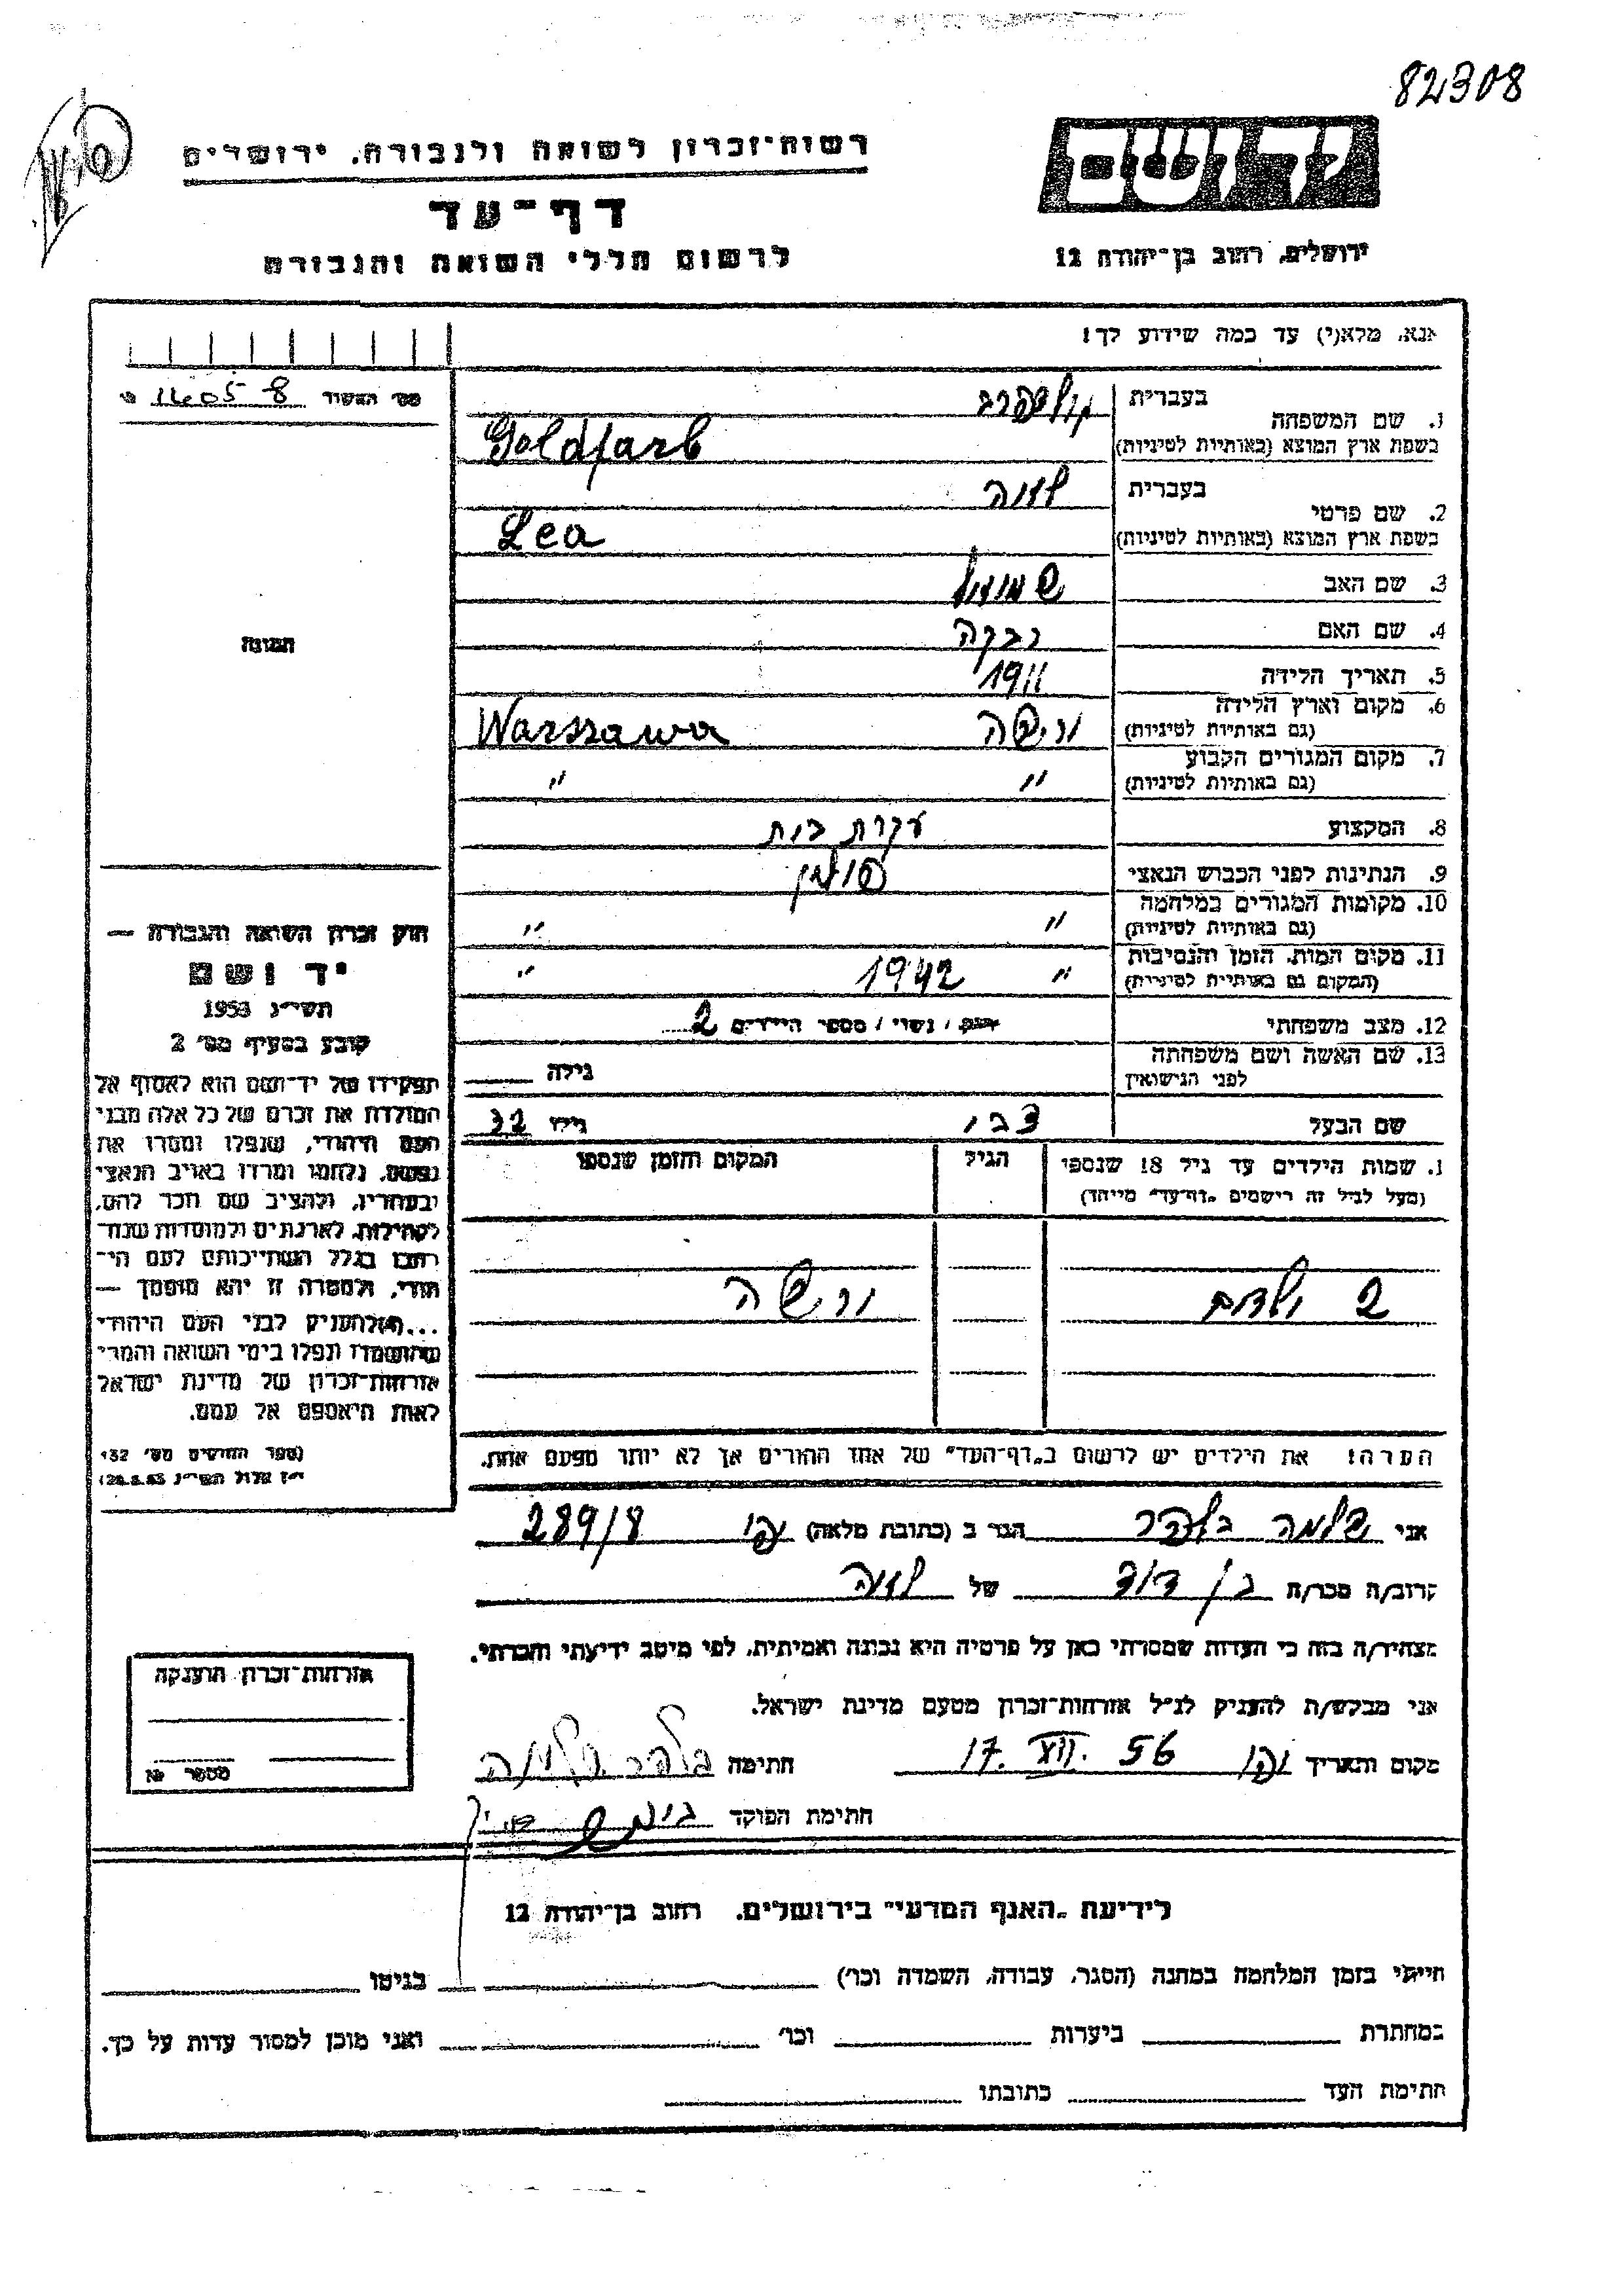 82308
יד ושם
רשות-זכרון לשואה ולגבורה, ירושלים
דף-עד
לרשום חללי השואה והגבורה
ירושלים, רחוב בן-יהודה 12
אנא, מלא(י) עד כמה שידוע לך!
מס' האשור 8
1. שם המשפחה
בעברית גולדפרב
בשפת ארץ המוצא (באותיות לטיניות) Goldfarb
2. שם פרטי
בעברית לאה
בשפת ארץ המוצא (באותיות לטיניות) Lea
3. שם האב שמואל
4. שם האם רבקה
5. תאריך הלידה 1911
6. מקום וארץ הלידה
(גם באותיות לטיניות) ורשה Warszawa
7. מקום המגורים הקבוע
(גם באותיות לטיניות) " "
8. המקצוע עקרת בית
9. הנתינות לפני הכבוש הנאצי פולין
10. מקומות המגורים במלחמה
(גם באותיות לטיניות) " "
11. מקום המות, הזמן והנסיבות
(המקום גם באותיות לטיניות) " 1942 "
12. מצב משפחתי רווק / נשוי / מספר הילדים 2
13. שם האשה ושם משפחתה
לפני הנישואין גילה
שם הבעל צבי גילו 32
שמות הילדים עד גיל 18 שנספו הגיל המקום והזמן שנספו
(מעל לגיל זה רישמים "דף-עד" מיוחד)
2 ילדים ורשה
הערה: את הילדים יש לרשום ב"דף-העד" של אחד ההורים אך לא יותר מפעם אחת.
תמונה
חוק זכרון השואה והגבורה —
יד ושם
תשי"ג 1953
קובע בסעיף מס' 2
תפקידו של יד-ושם הוא לאסוף אל
המולדת את זכרם של כל אלה מבני
העם היהודי, שנפלו ומסרו את
נפשם, נלחמו ומרדו באויב הנאצי
ובעוזריו, ולהציב שם וזכר להם,
לקהילות, לארגונים ולמוסדות שנח-
רבו בגלל השתייכותם לעם הי-
הודי, ולמטרה זו יהא מוסמך —
...להעניק לבני העם היהודי
שהושמדו ונפלו בימי השואה והמרי
אזרחות-זכרון של מדינת ישראל
לאות היאספם אל עמם.
(ספר החוקים מס' 132
י"ז אלול תשי"ג 28.8.53)
אני שלמה הגר ב (כתובת מלאה) יפו 289/8
קרוב/ה מכר/ה בן דוד של לאה
מצהיר/ה בזה כי העדות שמסרתי כאן על פרטיה היא נכונה ואמיתית, לפי מיטב ידיעתי והכרתי.
אני מבקש/ת להעניק לנ"ל אזרחות-זכרון מטעם מדינת ישראל.
מקום ותאריך יפו 17. XII. 56 חתימה
חתימת הפוקד
אזרחות-זכרון הוענקה
מספר №
לידיעת "האגף המדעי" בירושלים, רחוב בן-יהודה 12
הייתי בזמן המלחמה במחנה (הסגר, עבודה, השמדה וכו') בגיטו
במחתרת ביערות וכו' ואני מוכן למסור עדות על כך.
חתימת העד כתובתו